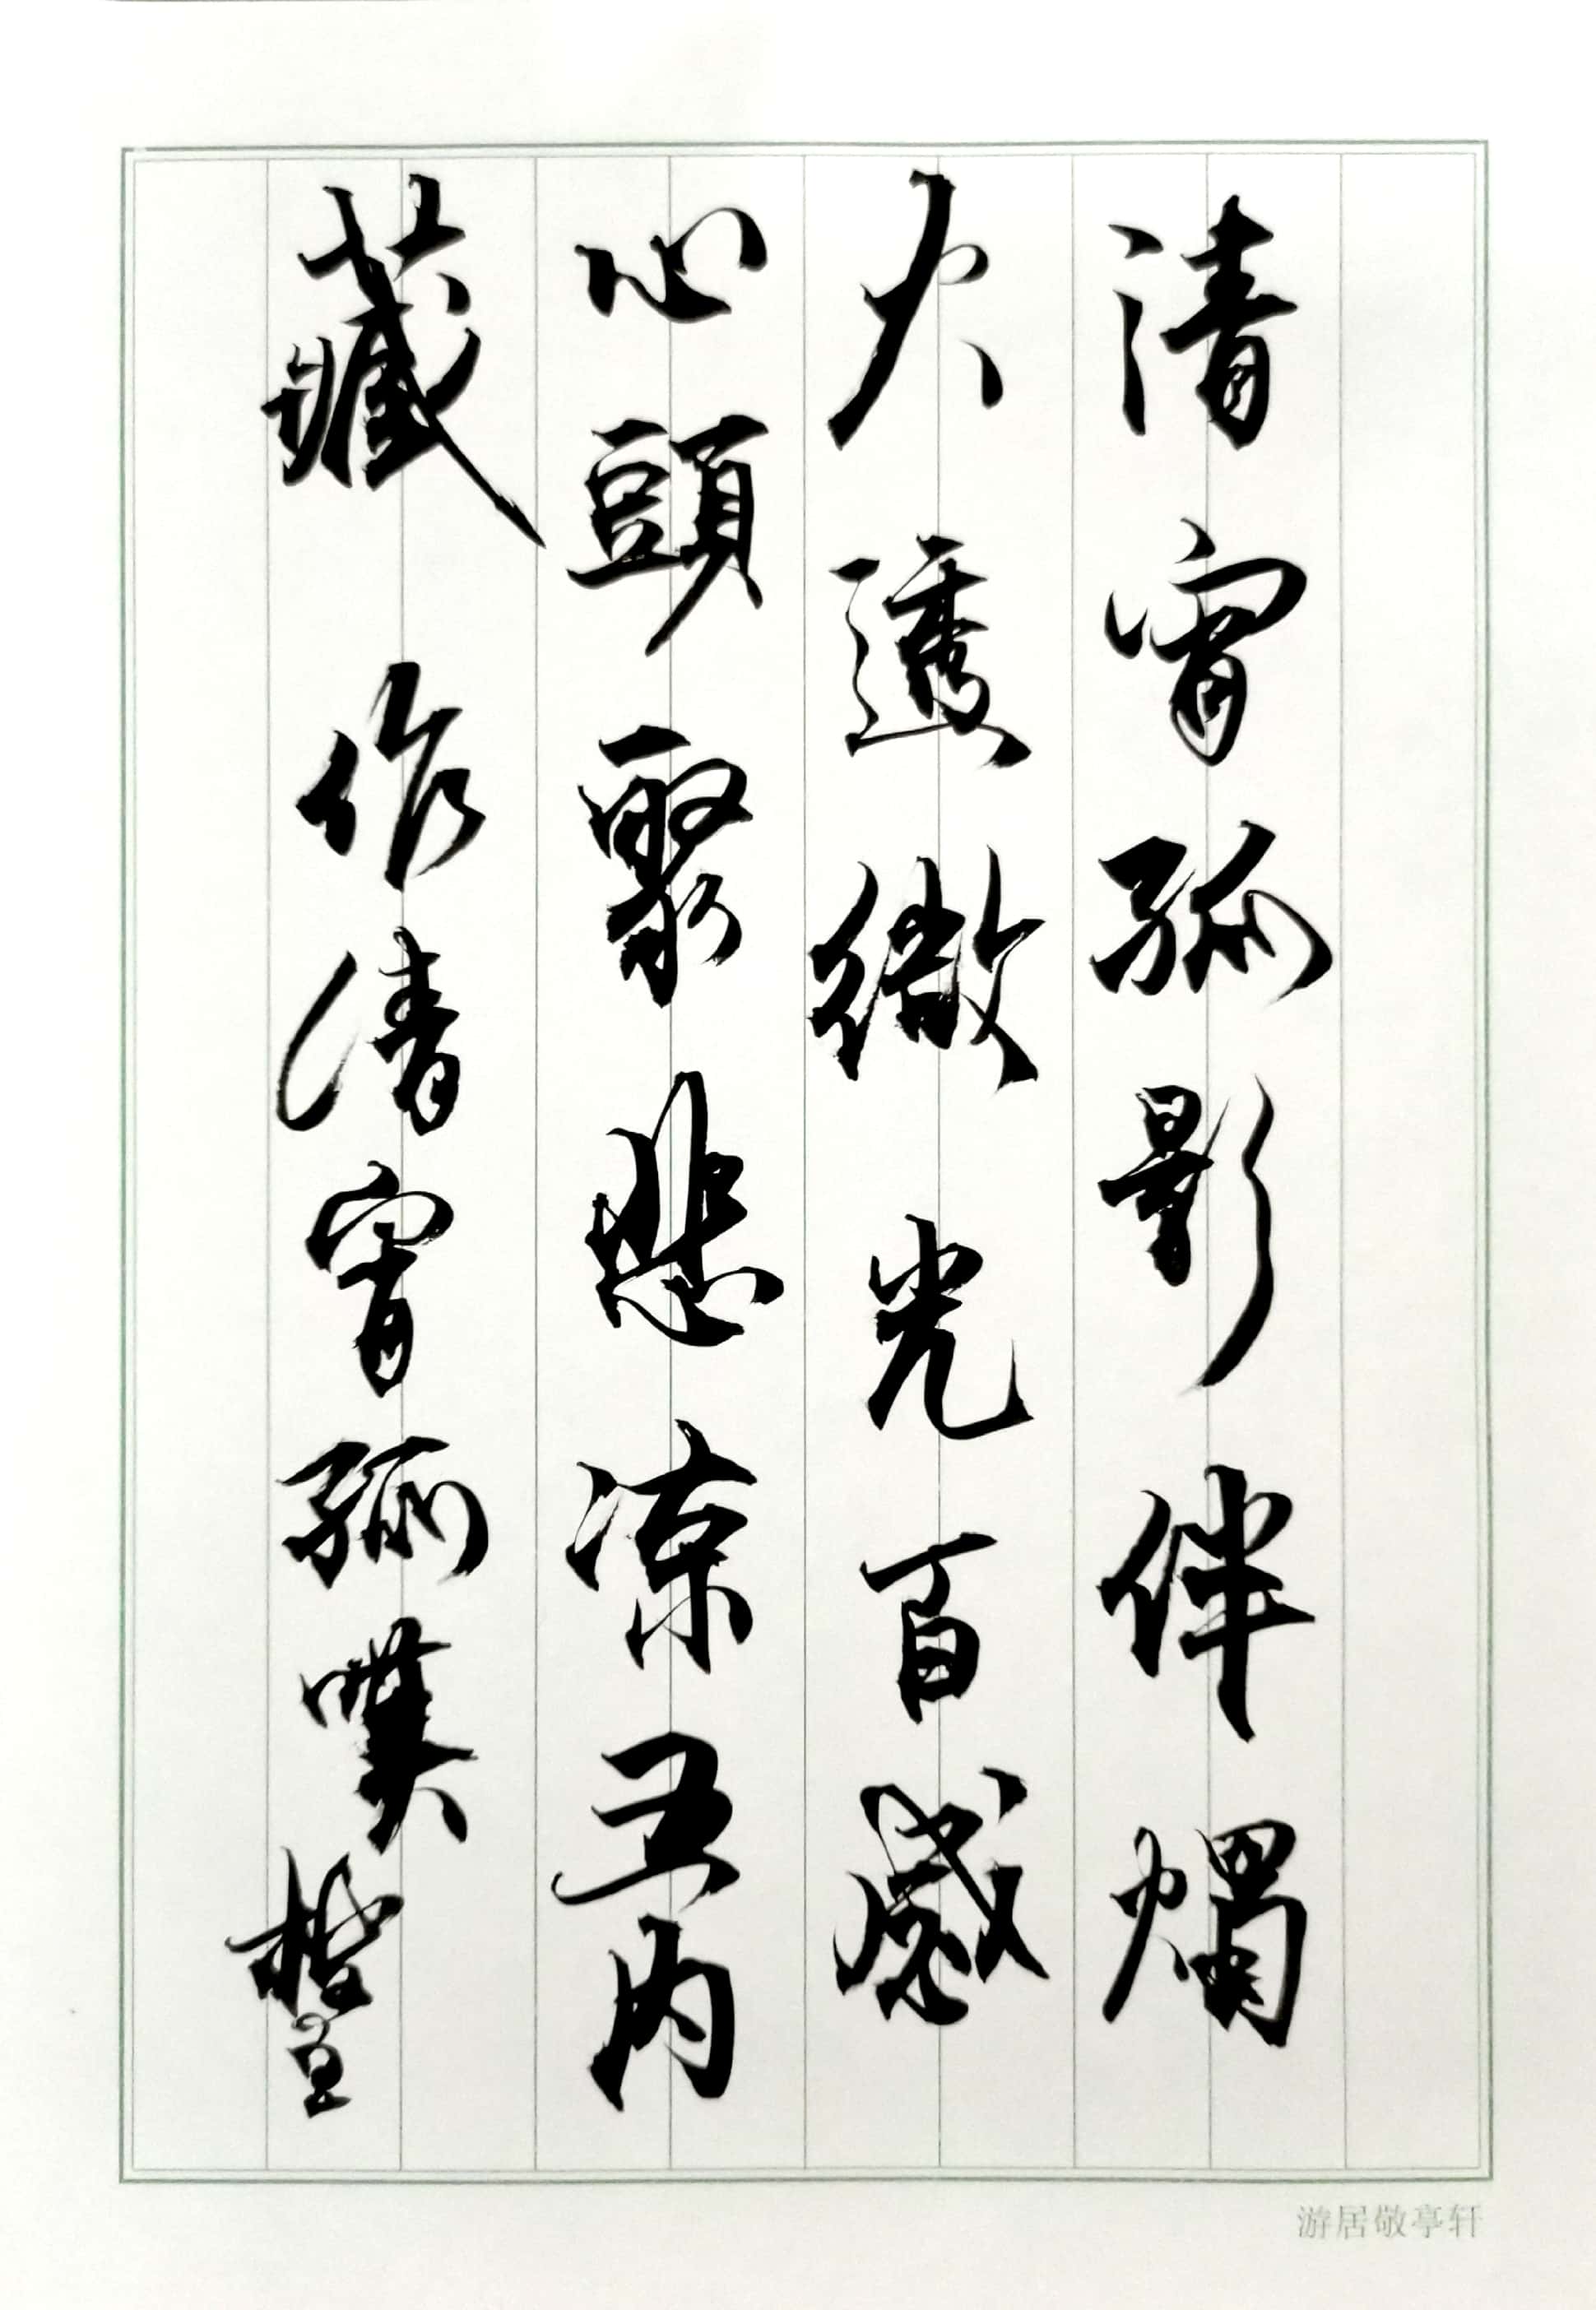 清宵孤影伴燭
火透微光百感
心頭聚悲涼五內
藏 作清宵孤嘆
游居敬亭轩